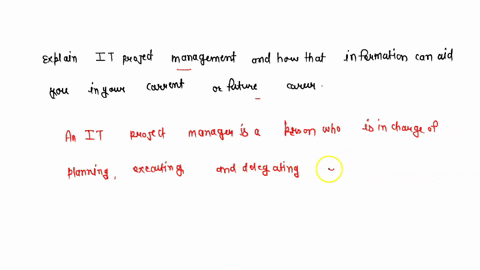 Explain IT project management and how that information can aid
you in your current or future career.
An IT project manager is a person who is in charge of
planning, executing and delegating